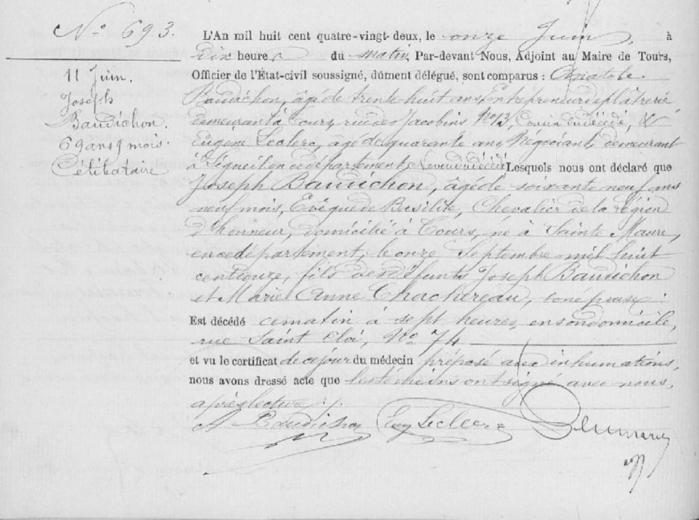 N° 693.
11 Juin.
Joseph
Baudichon.
69 ans 9 mois.
Célibataire
L'An mil huit cent quatre-vingt-deux, le onze Juin, à
dix heures du matin, Par-devant Nous, Adjoint au Maire de Tours,
Officier de l'État-civil soussigné, dûment délégué, sont comparus : Anatole
Baudichon, âgé de trente huit ans, Entrepreneur de plâtrerie
demeurant à Tours, rue des Jacobins N° 13, Cousin du décédé, &
Eugène Leclerc, âgé de quarante ans, Négociant, demeurant
à Ligueil en ce département, neveu du décédé Lesquels nous ont déclaré que
Joseph Baudichon, âgé de soixante neuf ans
neuf mois, Evêque de Basilite, Chevalier de la Légion
d'honneur, domicilié à Tours, né à Sainte Maure,
en ce département, le onze Septembre mil huit
cent douze, fils des défunts Joseph Baudichon
et Marie Anne Chachereau, son épouse :
Est décédé ce matin à sept heures, en son domicile,
rue Saint Eloi, N° 74
et vu le certificat de ce jour du médecin préposé aux inhumations,
nous avons dressé acte que les témoins ont signé avec nous,
après lecture :
A Baudichon Eug Leclerc